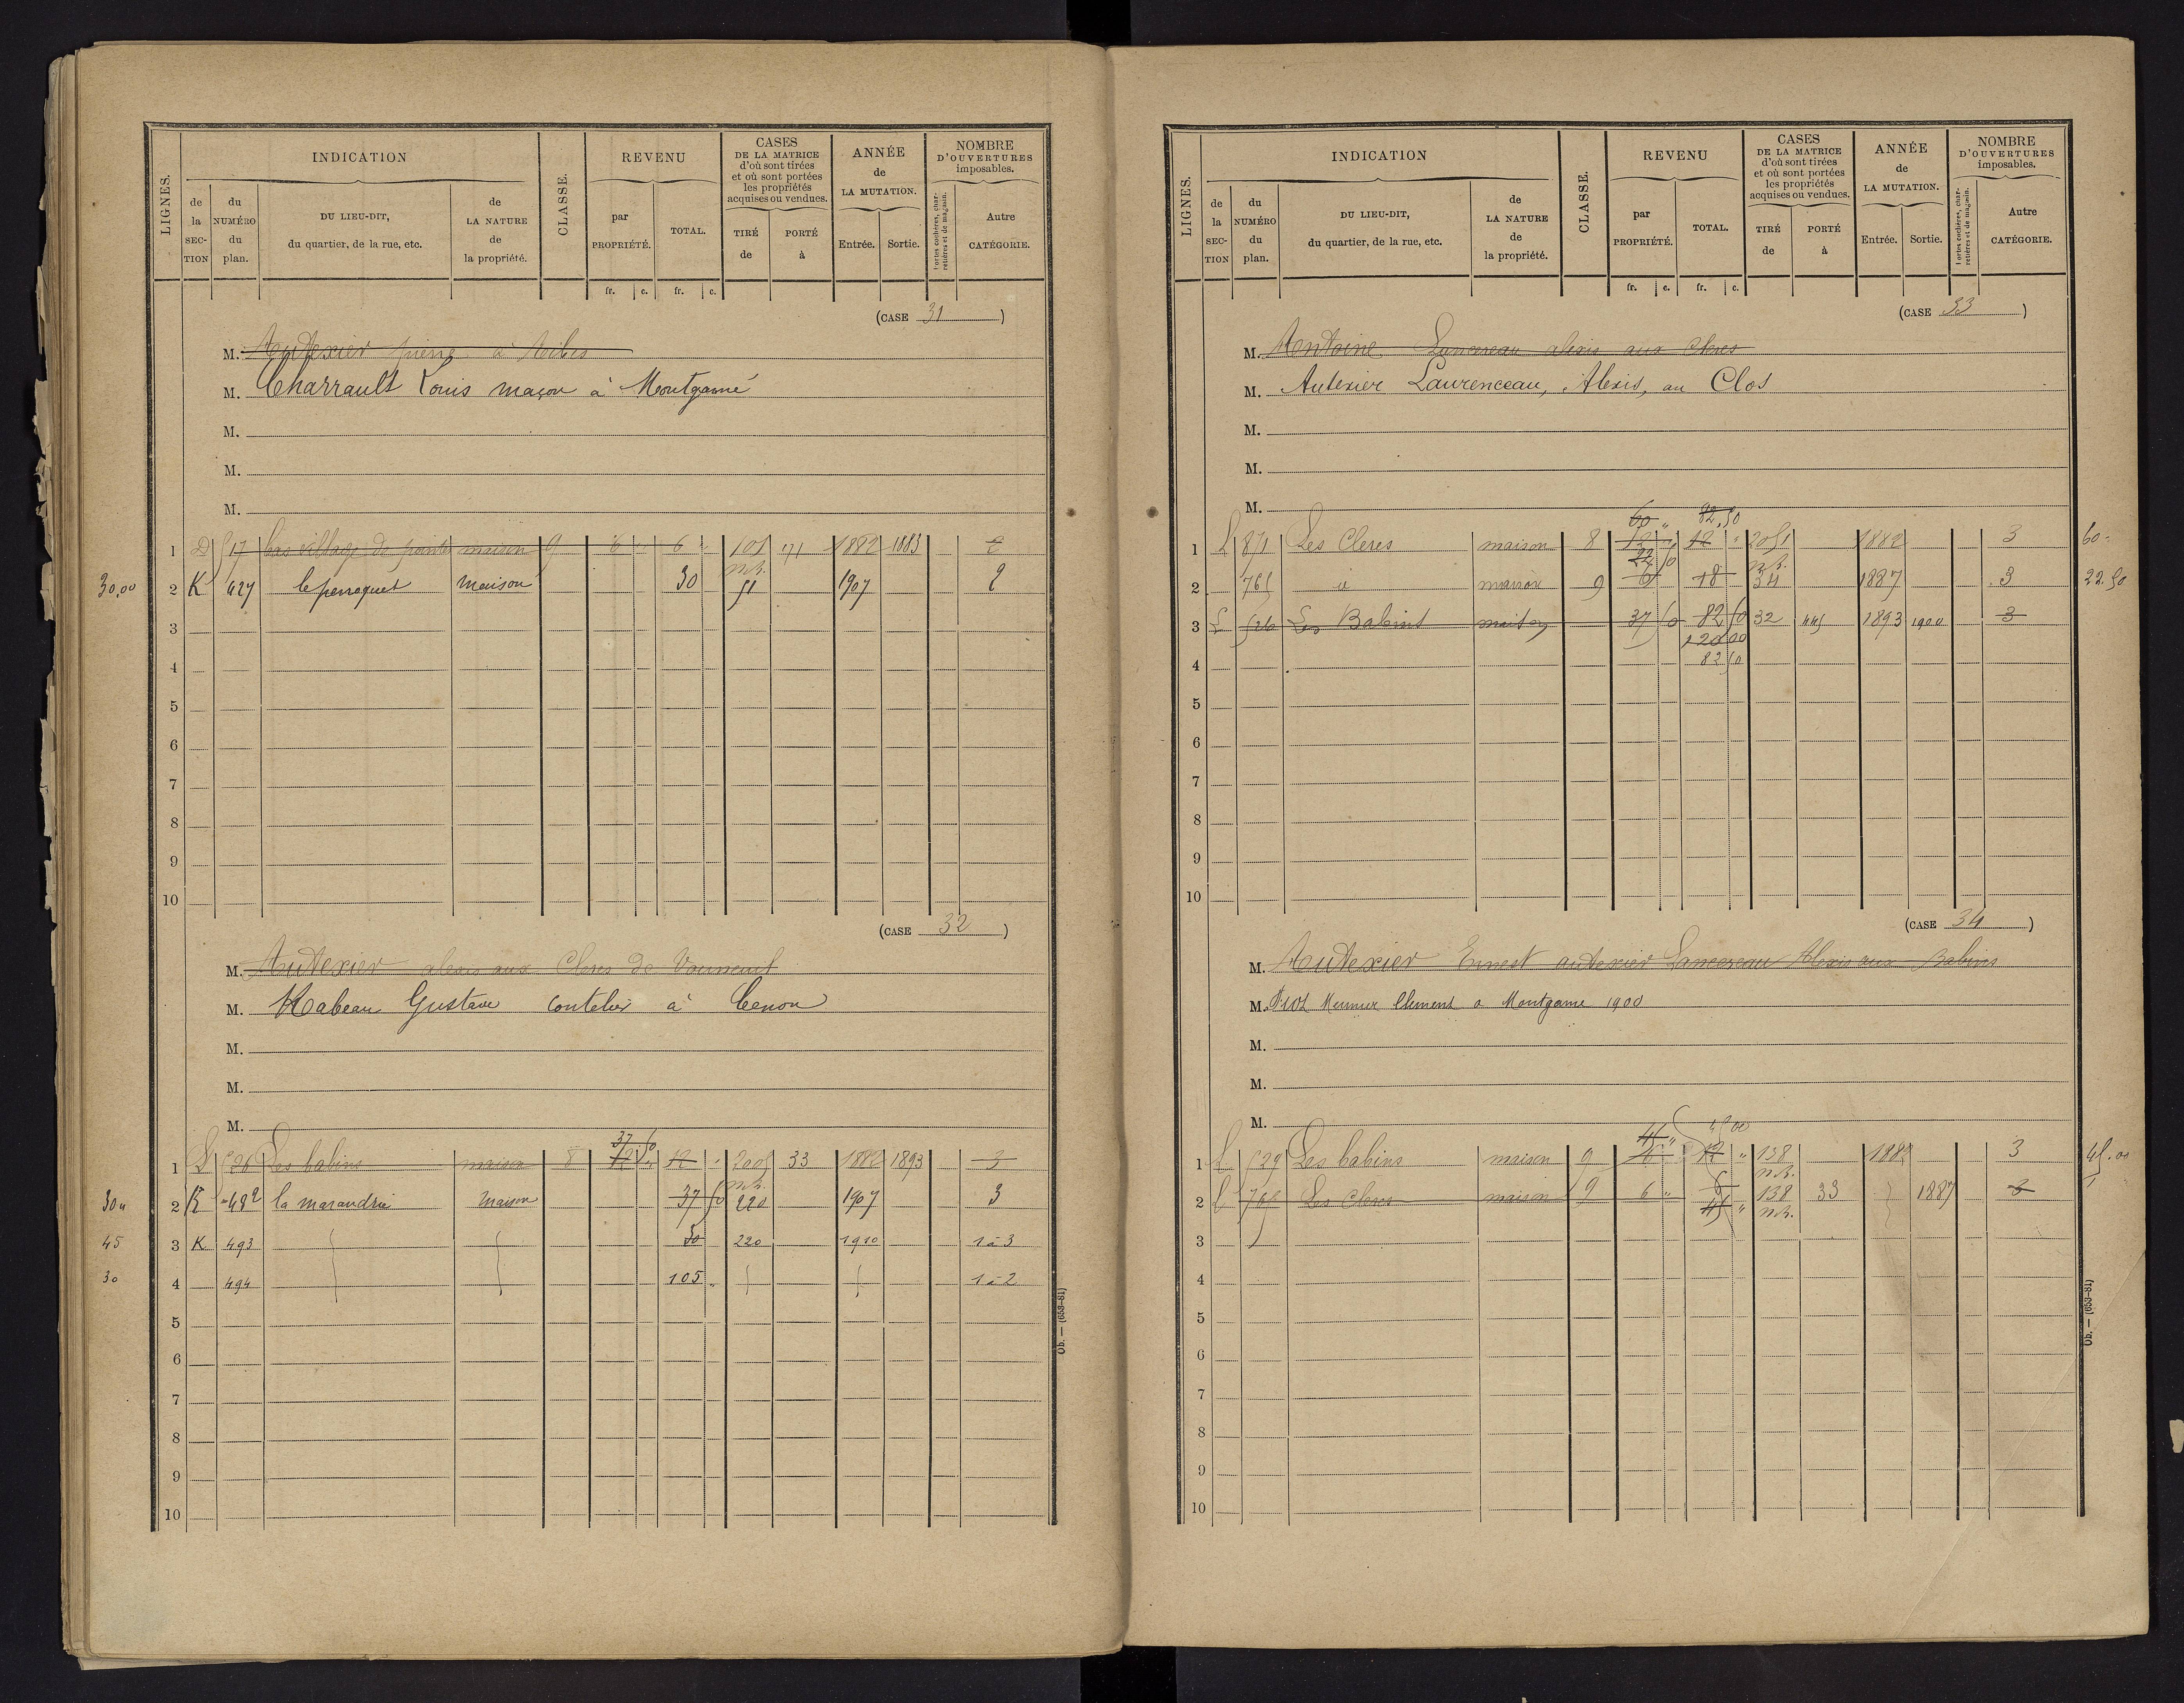 LIGNES.
INDICATION
de la SECTION
du NUMÉRO du plan.
DU LIEU-DIT, du quartier, de la rue, etc.
de LA NATURE de la propriété.
CLASSE.
REVENU
par PROPRIÉTÉ.
TOTAL.
fr. c. fr. c.
CASES DE LA MATRICE d'où sont tirées et où sont portées les propriétés acquises ou vendues.
TIRÉ de
PORTÉ à
ANNÉE de LA MUTATION.
Entrée. Sortie.
NOMBRE D'OUVERTURES imposables.
Portes cochères, charretières et de magasin.
Autre CATÉGORIE.
(CASE 31)
M. Autexier pierre à
M. Charrault Louis maçon à Montgamé
M.
M.
M.
1 D 517 bas village de maison 9 6 " 6 " 101 171 1882 1883 2
n.b.
30,00 2 K 427 le perroquet maison 30 51 1907 2
3
4
5
6
7
8
9
10
(CASE 32)
M. Autexier alexis aux Cleres de Vouneuil
M. Rabeau Gustave coutelier à Cenon
M.
M.
M.
37 50
1 L 526 Les babins maison 8 12 " 12 " 2005 33 1882 1893 3
n.b.
30 " 2 K 482 la marandrie maison 37 50 220 1907 3
45 3 K 493 30 220 1910 1 à 3
30 4 494 105 " 1 à 2
5
6
7
8
9
10
Ob. — (653-81)
LIGNES.
INDICATION
de la SECTION
du NUMÉRO du plan.
DU LIEU-DIT, du quartier, de la rue, etc.
de LA NATURE de la propriété.
CLASSE.
REVENU
par PROPRIÉTÉ.
TOTAL.
fr. c. fr. c.
CASES DE LA MATRICE d'où sont tirées et où sont portées les propriétés acquises ou vendues.
TIRÉ de
PORTÉ à
ANNÉE de LA MUTATION.
Entrée. Sortie.
NOMBRE D'OUVERTURES imposables.
Portes cochères, charretières et de magasin.
Autre CATÉGORIE.
(CASE 33)
M. Antoine Lancereau alexis aux Cleres
M. Autexier Laurenceau, Alexis, au Clos
M.
M.
M.
60 " 82,50
1 L 871 Les Cleres maison 8 12 " 12 " 2051 1882 3 60 -
22 50 n.b.
2 765 id maison 9 6 18 34 1887 3 22.50
3 L 526 Les Babins maison 37 50 82 50 32 445 1893 1900 3
120 00
4 82 50
5
6
7
8
9
10
(CASE 34)
M. Autexier Ernest autexier Lancereau Alexis aux Babins
M. Meunier Clement a Montgame 1900
M.
M.
M.
45 " 45 00
1 L 529 Les babins maison 9 6 12 " 138 1882 3 45.00
n.b.
2 L 765 Les Cleres maison 9 6 " 6 138 33 1887 3
45 " n.b.
3
4
5
6
7
8
9
10
Ob. — (653-81)